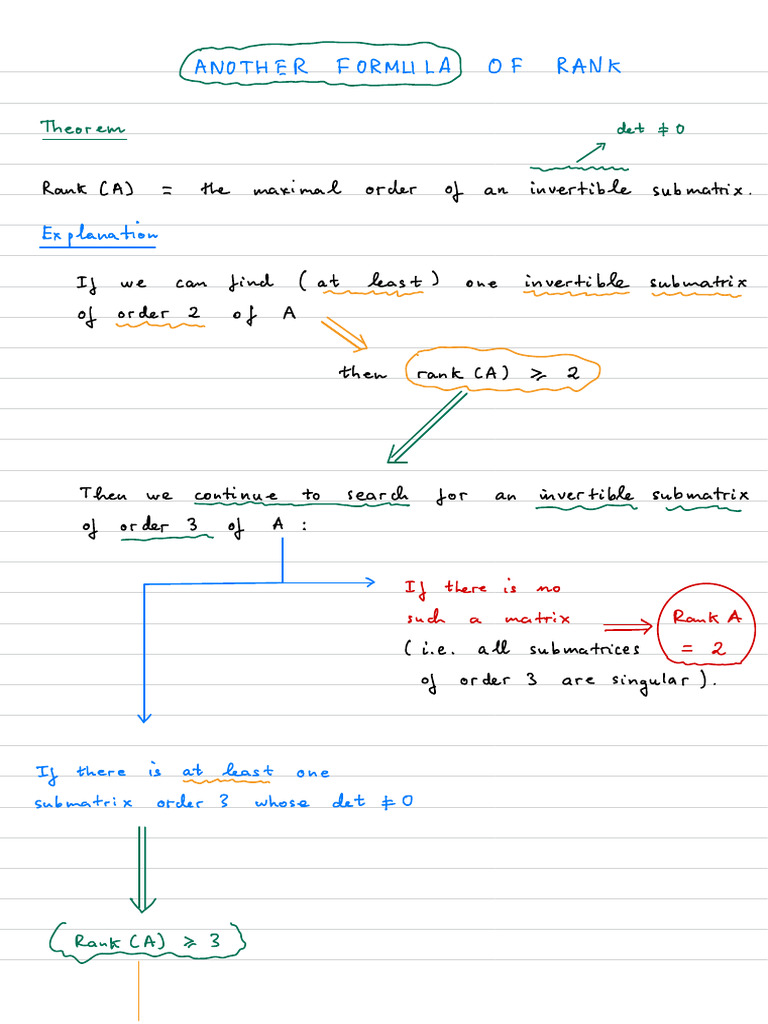 ANOTHER FORMULA OF RANK
Theorem
det ≠ 0
Rank (A) = the maximal order of an invertible submatrix.
Explanation
If we can find (at least) one invertible submatrix
of order 2 of A
then rank (A) ⩾ 2
Then we continue to search for an invertible submatrix
of order 3 of A :
If there is no
such a matrix
(i.e. all submatrices
of order 3 are singular).
Rank A
= 2
If there is at least one
submatrix order 3 whose det ≠ 0
(Rank (A) ⩾ 3)